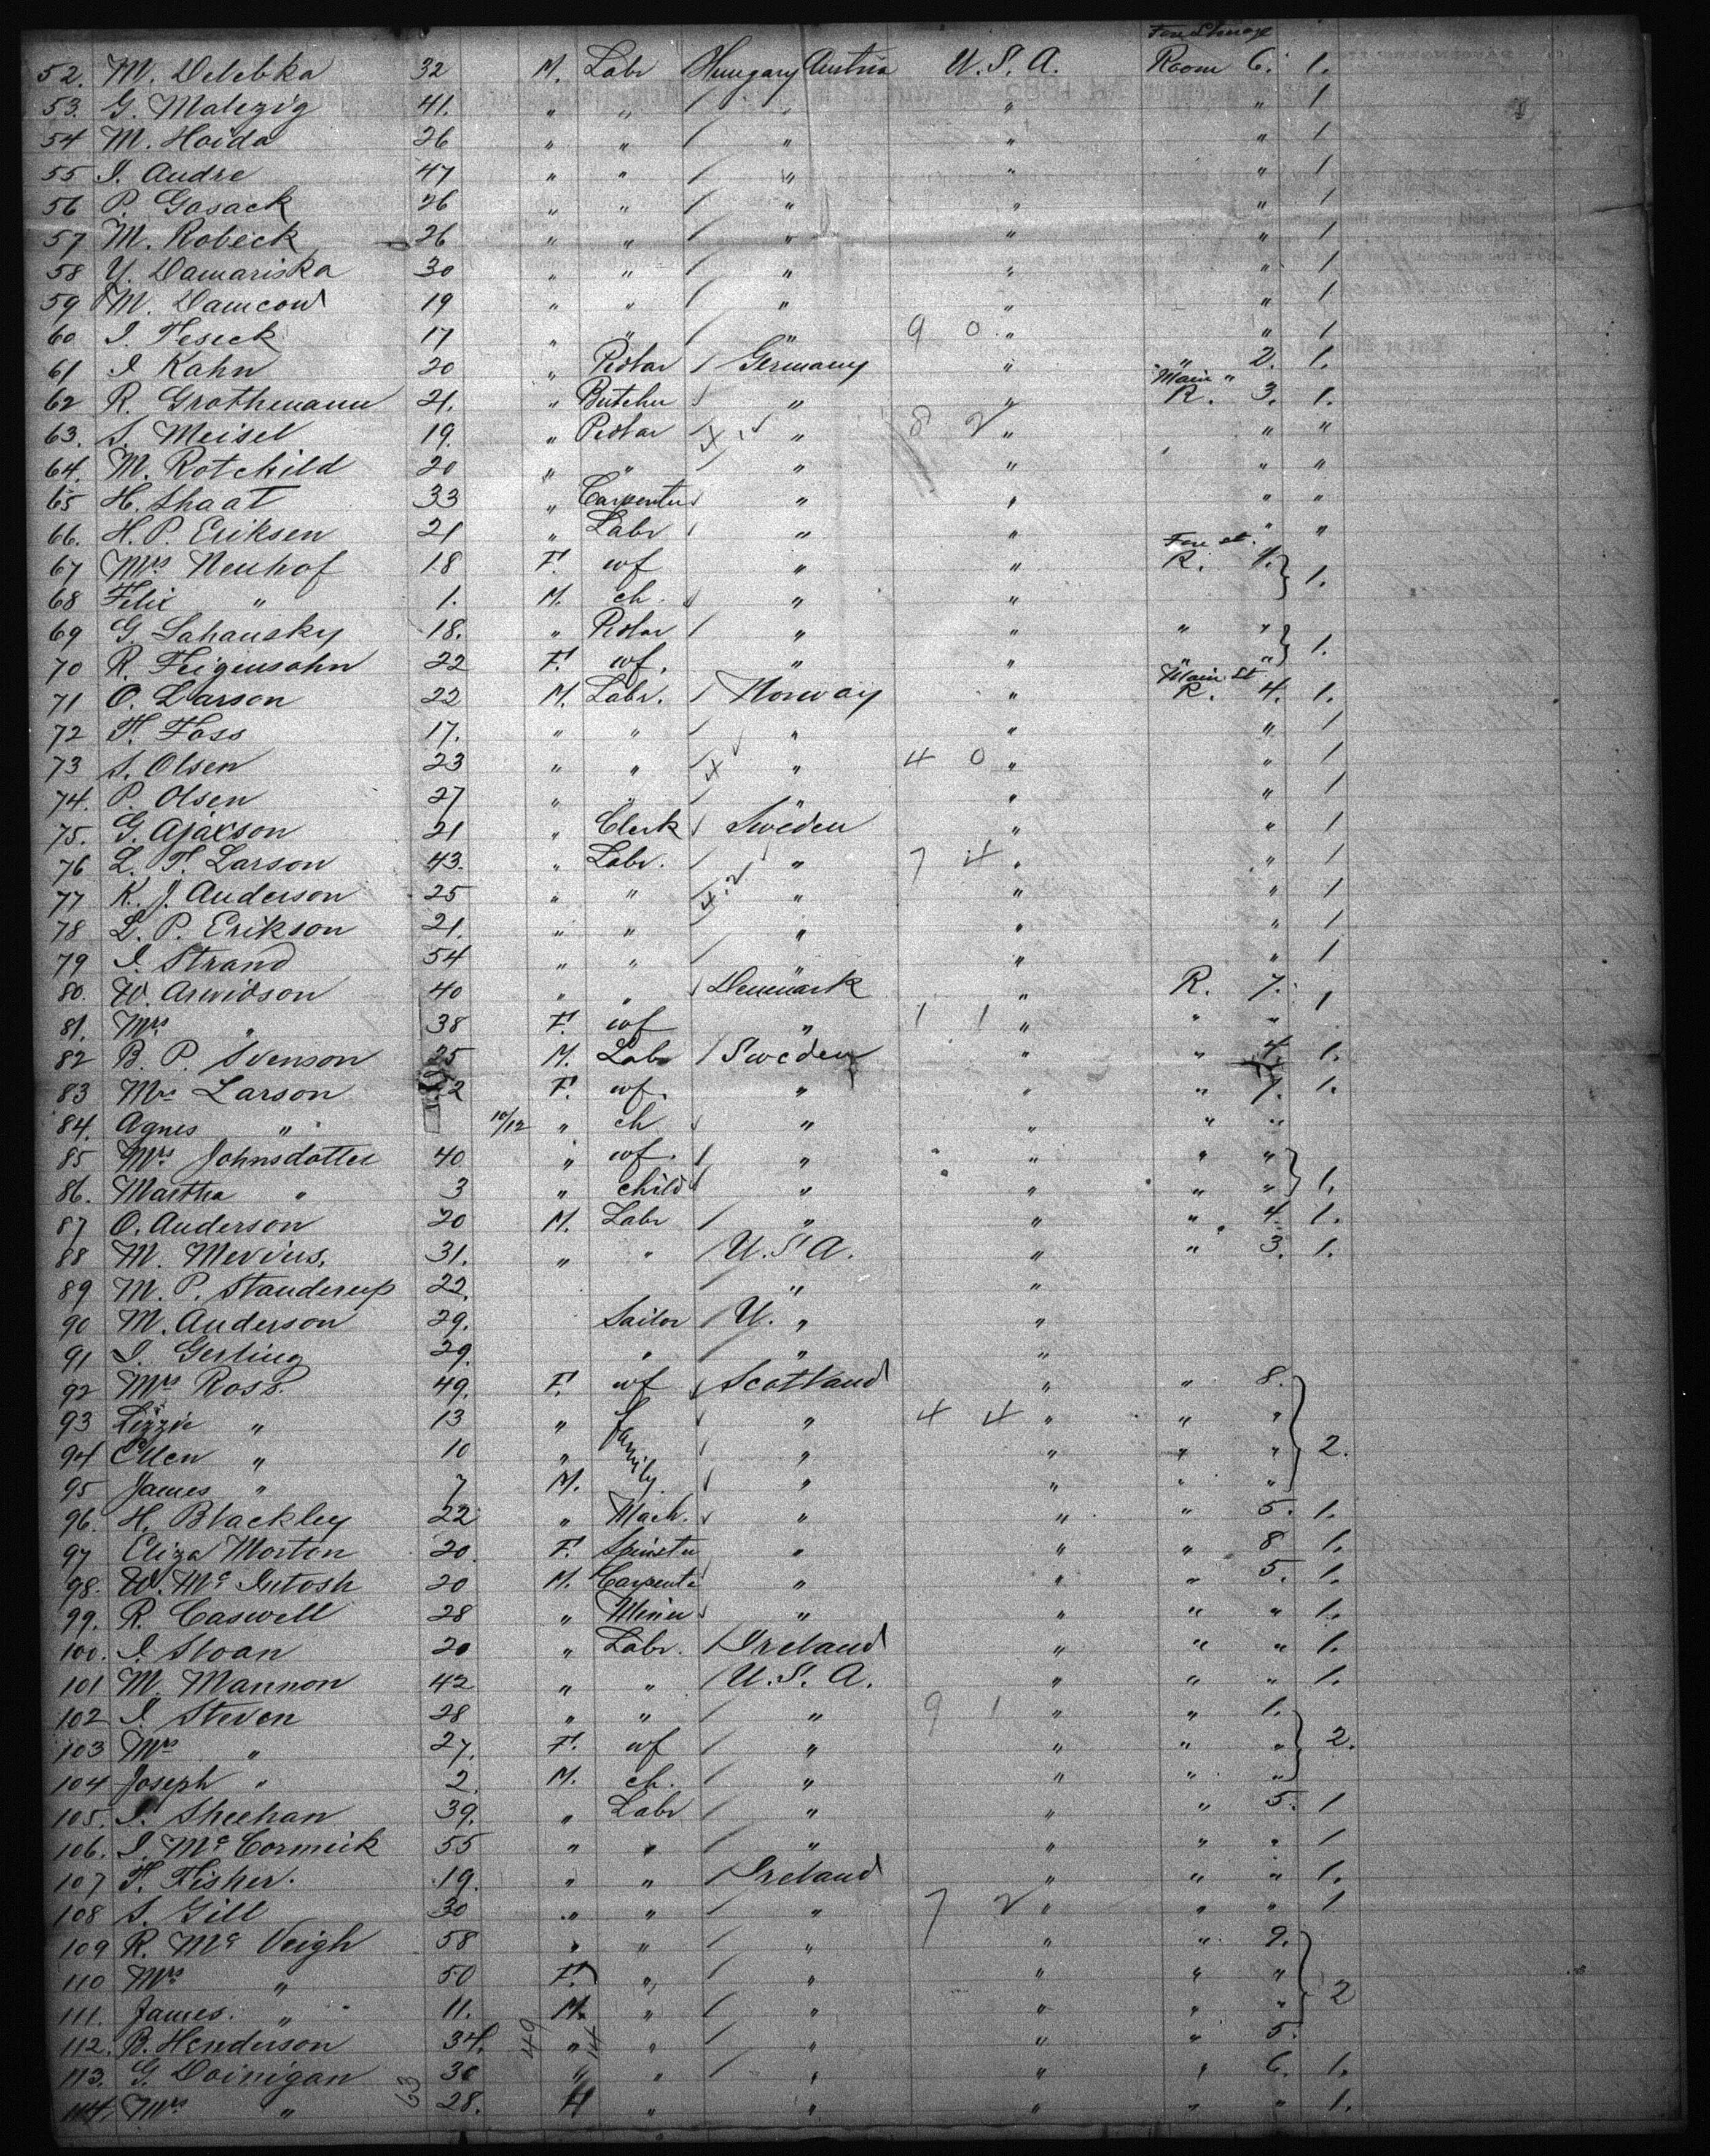 Fore Steerage
52. M. Delebka 32 M. Labr Hungary Austria U. S. A. Room 6. 1.
53. G. Malezig 41. " " / " " " 1
54 M. Hoida 26 " " / " " " 1
55 I. Andre 47 " " / " " " 1
56 P. Gasack 26 " " / " " " 1
57 M. Robeck 26 " " / " " " 1
58 Y. Damariska 30 " " / " " " 1
59 M. Damcow 19 " " / " " " 1
60 I. Feseck 17 " " / " 9 0 " " 1
61 I Kahn 20 " Pedlar / Germany " " 2. 1.
Main "
62 R. Grothmann 21. " Butcher / " " R. 3. 1.
63. S. Meisel 19. " Pedlar / " 8 2 " " "
64. M. Rotchild 20 " " / " " " "
65 H. Shaat 33 " Carpenter / " " " "
66. H. P. Eriksen 21 " Labr / " " " "
Fore st.
67 Mrs Neuhof 18 F. wf " " R. 1.
68 Felix " 1. M. ch. / " " 1.
69 G. Lahansky 18. " Pedlar / " " " "
70 R. Feigensohn 22 F. wf. " " " " 1.
Main St
71 O. Larson 22 M. Labr. / Norway " R. 4. 1.
72 F. Foss 17. " " / " " " 1
73 S. Olsen 23 " " / " 4 0 " " 1
74. P. Olsen 27 " " / " " " 1
75. G. Ajaxson 21 " Clerk / Sweden " " 1
76 L. F. Larson 43. " Labr. / " 7 4 " " 1
77 K. J. Anderson 25 " " / " " " 1
78 L. P. Erikson 21. " " / " " " 1
79 I. Strand 54 " " / " " " 1
80. W. Arvidson 40 " " / Denmark " R. 7. 1
81. Mrs " 38 F. wf " 1 1 " " "
82 B. P. Svenson 25 M. Labr / Sweden " " 4. 1.
83 Mrs Larson F. wf. " " " 7. 1.
84. Agnes " 10/12 " ch / " " " "
85 Mrs Johnsdotter 40 " wf. / " " " "
86. Martha " 3 " child / " " " " 1.
87 O. Anderson 20 M. Labr / " " " 4. 1.
88 M. Mevius, 31. " " / U. S. A. " " 3. 1.
89 M. P. Standerup 22. / " "
90 M. Anderson 29. Sailor / U. " "
91 I. Gerling 29. " / " "
92 Mrs Ross. 49. F. wf / Scotland " " 8.
93 Lizzie " 13 " family / " 4 4 " " "
94 Ellen " 10 " / " " " " 2.
95 James " 7 M. / " " " "
96. H. Blackley 22 " Mach. / " " " 5. 1.
97 Eliza Morton 20. F. Spinster " " " 8 1.
98. W. Mc Intosh 20 M. Carpenter " " " 5. 1.
99. R. Caswell 28 " Miner / " " " " 1.
100. I. Sloan 20 " Labr. / Ireland " " " 1.
101 M. Mannon 42 " " / U. S. A. " " " 1.
102 I. Steven 28 " " / " 9 1 " " 1.
103 Mrs " 27. F. wf / " " " " 2.
104 Joseph " 2. M. ch. / " " " "
105. I. Sheehan 39. " Labr / " " " 5. 1
106. I. Mc Cormick 55 " " / " " " " 1
107 F. Fisher. 19. " " / Ireland " " " 1.
108 S. Gill 30 " " / " 7 2 " " " 1
109 R. Mc Veigh 58 " " / " " " 9.
110 Mrs " 50 F. " / " " " "
111. James. " 11. M. " / " " " " 2
112. B. Henderson 34. " " / " " " 5.
113. G. Doinigan 30 " " / " " " 6. 1.
114. Mrs " 28. " " " " " 1.
63 49 14